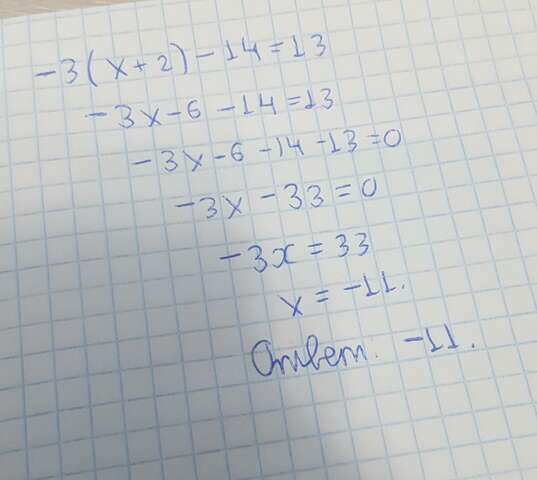 -3(x+2)-14=13
-3x-6-14=13
-3x-6-14-13=0
-3x-33=0
-3x=33
x=-11.
Ответ. -11.